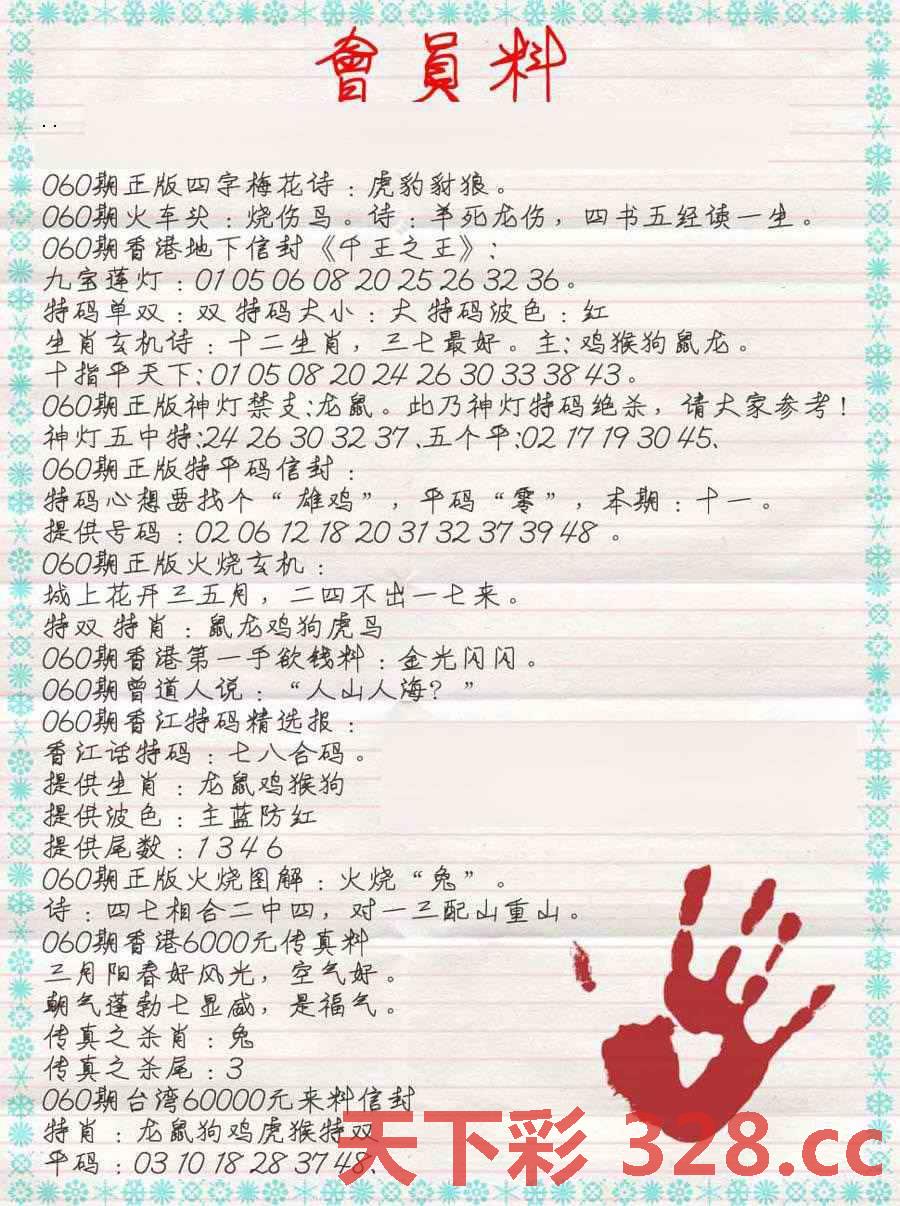 會員料
..
060期正版四字梅花诗：虎豹豺狼。
060期火车头：烧伤鸟。诗：羊死龙伤，四书五经读一生。
060期香港地下信封《千王之王》：
九宝莲灯：01 05 06 08 20 25 26 32 36。
特码单双：双 特码大小：大 特码波色：红
生肖玄机诗：十二生肖，三七最好。主：鸡猴狗鼠龙。
十指平天下：01 05 08 20 24 26 30 33 38 43。
060期正版神灯禁支：龙鼠。此乃神灯特码绝杀，请大家参考！
神灯五中特：24 26 30 32 37、五个平：02 17 19 30 45、
060期正版特平码信封：
特码心想要找个“雄鸡”，平码“零”，本期：十一。
提供号码：02 06 12 18 20 31 32 37 39 48 。
060期正版火烧玄机：
城上花开三五月，二四不出一七来。
特双 特肖：鼠龙鸡狗虎马
060期香港第一手欲钱料：金光闪闪。
060期曾道人说：“人山人海？”
060期香江特码精选报：
香江话特码：七八合码。
提供生肖：龙鼠鸡猴狗
提供波色：主蓝防红
提供尾数：1 3 4 6
060期正版火烧图解：火烧“兔”。
诗：四七相合二中四，对一三配山重山。
060期香港6000元传真料
三月阳春好风光，空气好。
朝气蓬勃七显威，是福气。
传真之杀肖：兔
传真之杀尾：3
060期台湾60000元来料信封
特肖：龙鼠狗鸡虎猴特双
平码：03 10 18 28 37 48、
天下彩 328.cc